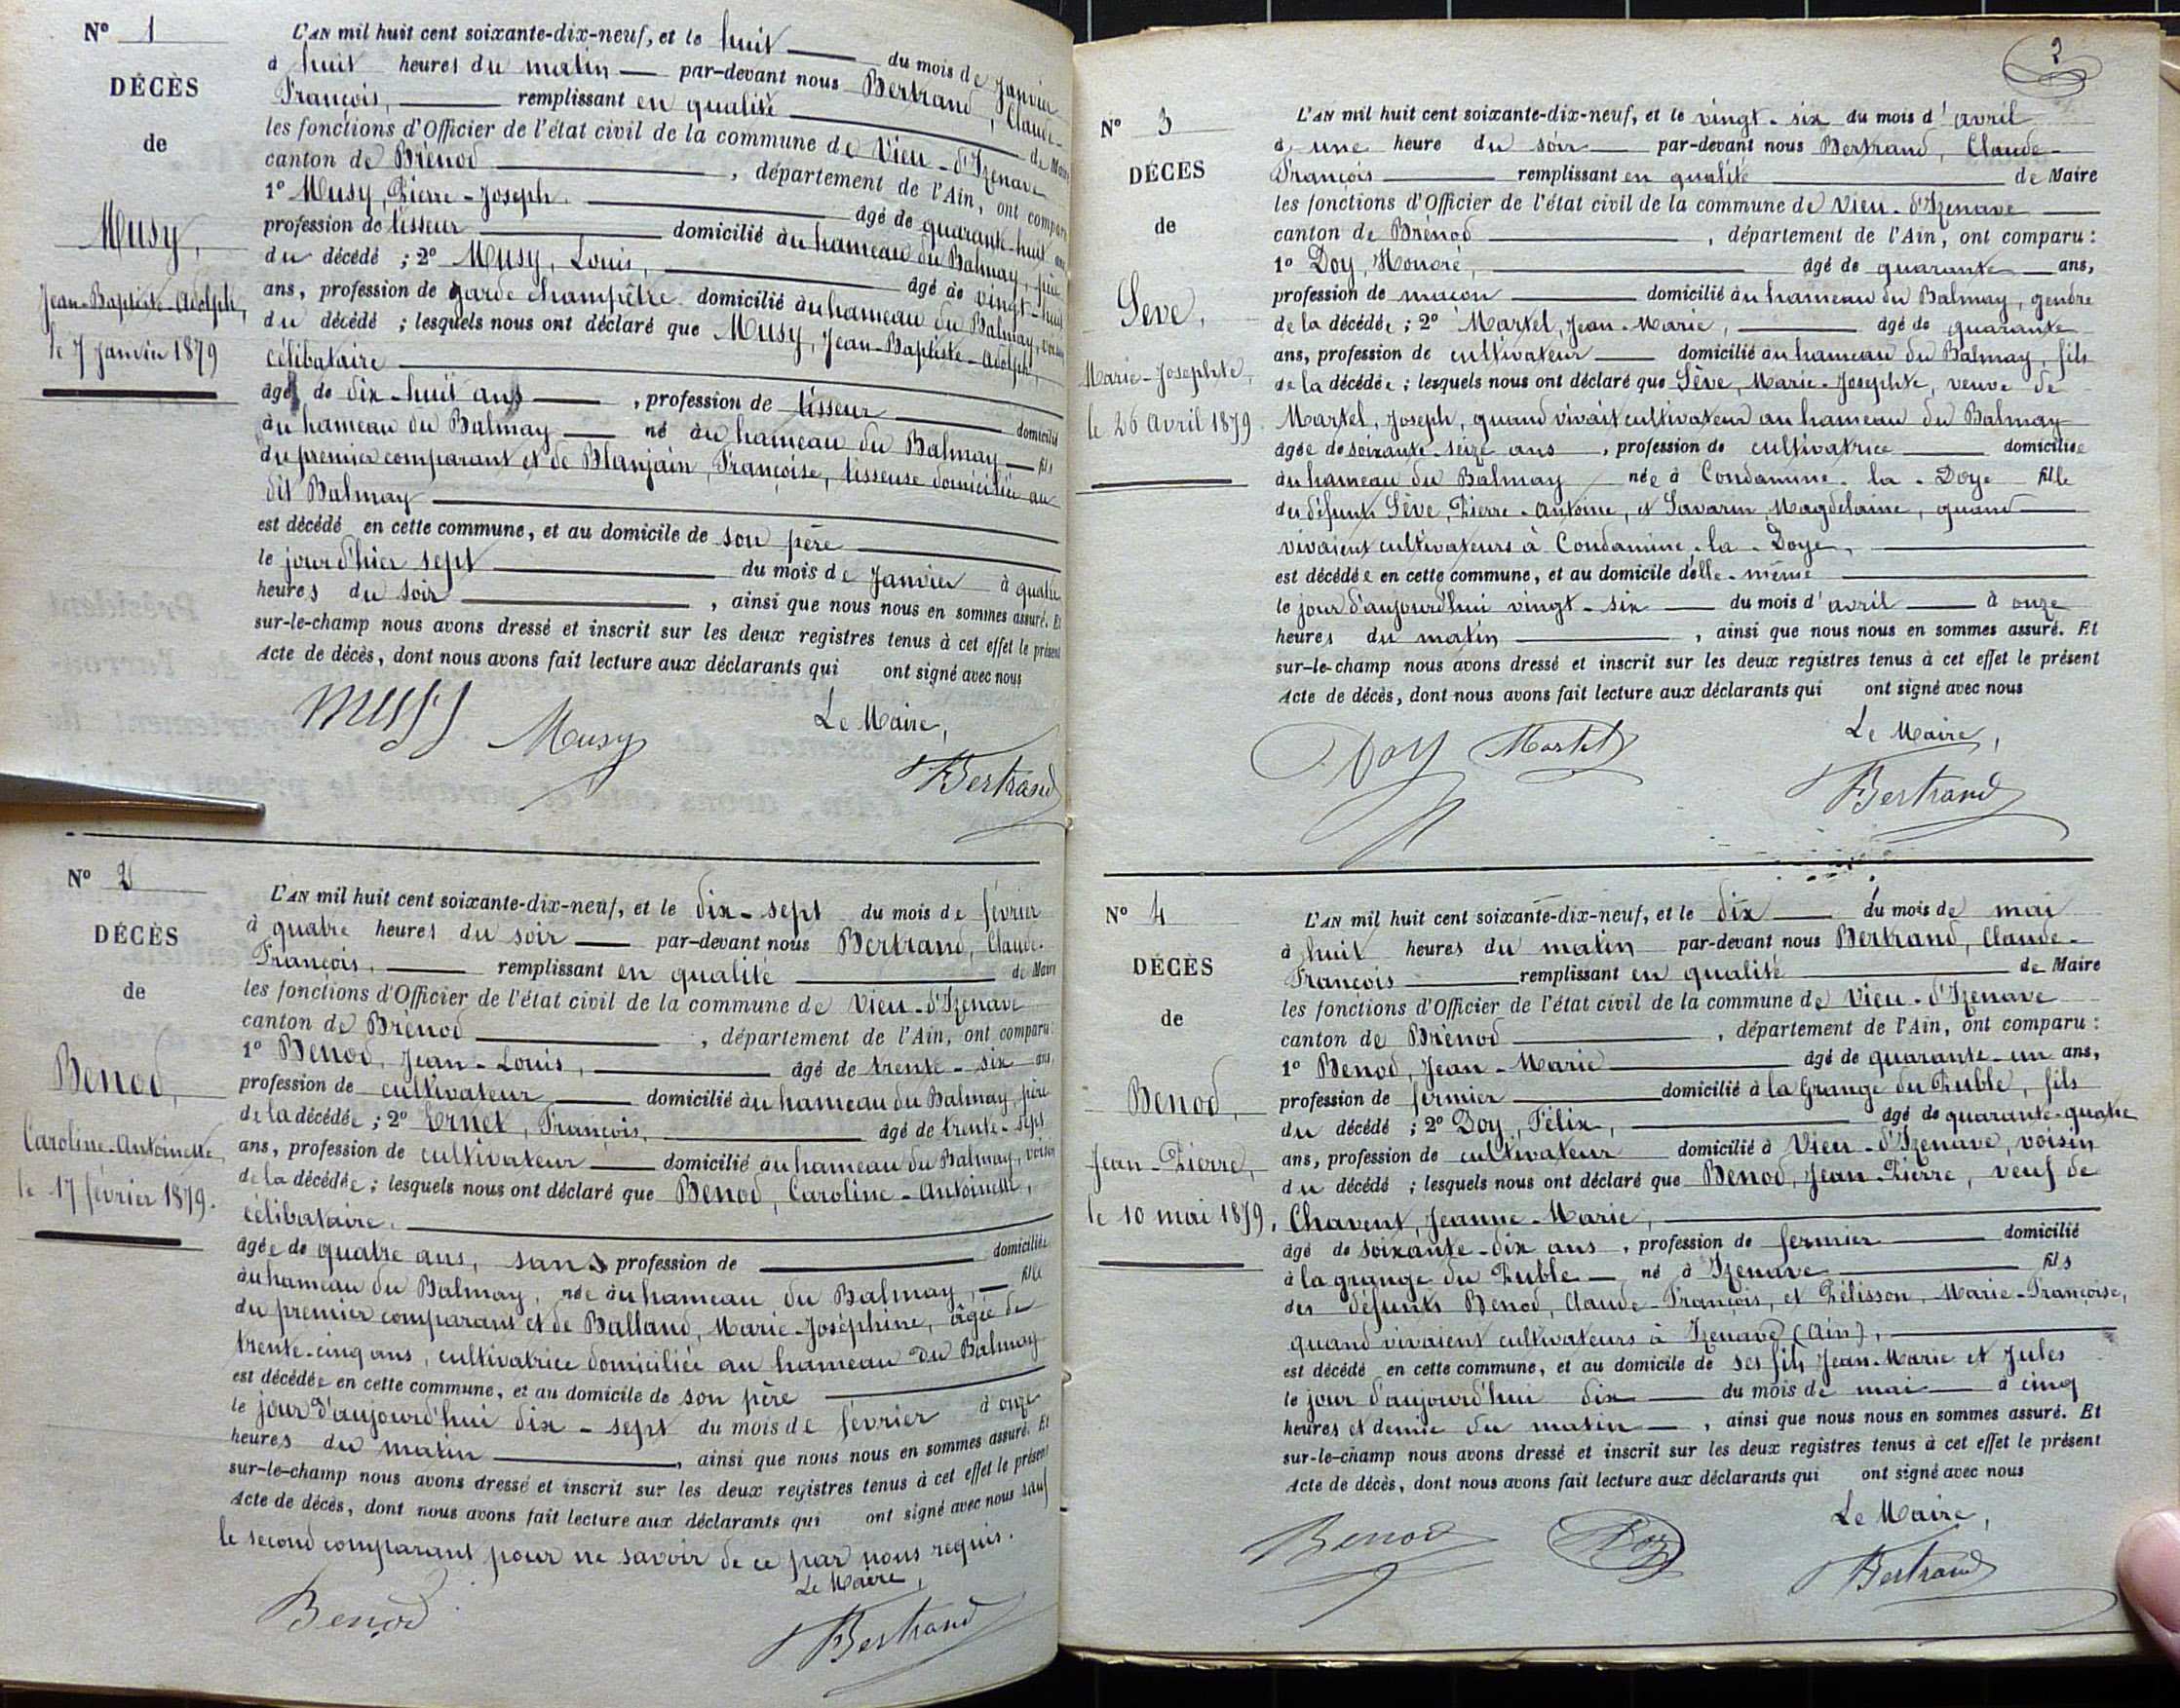 Nº 1
DÉCÈS
de
Musy,
Jean-Baptiste-Adolph,
le 7 Janvier 1879
L'AN mil huit cent soixante-dix-neuf, et le huit du mois de Janvier
à huit heures du matin par-devant nous Bertrand, Claude-
François, remplissant en qualité de Maire
les fonctions d'Officier de l'état civil de la commune de Vieu-d'Izenave
canton de Brénod, département de l'Ain, ont comparu
1º Musy, Pierre-Joseph. âgé de quarante-huit ans
profession de tisseur domicilié au hameau du Balmay, père
du décédé ; 2º Musy, Louis, âgé de vingt-huit
ans, profession de garde champêtre domicilié au hameau du Balmay, voisin
du décédé ; lesquels nous ont déclaré que Musy, Jean-Baptiste-Adolph,
célibataire
âgé de dix-huit ans, profession de tisseur domicilié
au hameau du Balmay né au hameau du Balmay fils
du premier comparant et de Blanjain, Françoise, tisseuse domiciliée au
dit Balmay
est décédé en cette commune, et au domicile de son père
le jour d'hier sept du mois de Janvier à quatre
heures du soir, ainsi que nous nous en sommes assuré. Et
sur-le-champ nous avons dressé et inscrit sur les deux registres tenus à cet effet le présent
Acte de décès, dont nous avons fait lecture aux déclarants qui ont signé avec nous
Musy Musy Le Maire,
Bertrand
Nº 2
DÉCÈS
de
Benod,
Caroline-Antoinette,
le 17 février 1879.
L'AN mil huit cent soixante-dix-neuf, et le dix-sept du mois de février
à quatre heures du soir par-devant nous Bertrand, Claude-
François, remplissant en qualité de Maire
les fonctions d'Officier de l'état civil de la commune de Vieu-d'Izenave
canton de Brénod, département de l'Ain, ont comparu :
1º Benod, Jean-Louis, âgé de trente-six ans,
profession de cultivateur domicilié au hameau du Balmay, père
de la décédée ; 2º Ernet, François, âgé de trente-sept
ans, profession de cultivateur domicilié au hameau du Balmay, voisin
de la décédée ; lesquels nous ont déclaré que Benod, Caroline-Antoinette,
célibataire.
âgée de quatre ans, sans profession de domiciliée
au hameau du Balmay, née au hameau du Balmay, fille
du premier comparant et de Balland, Marie-Joséphine, âgée de
trente-cinq ans, cultivatrice domiciliée au hameau du Balmay
est décédée en cette commune, et au domicile de son père
le jour d'aujourd'hui dix-sept du mois de février à onze
heures du matin, ainsi que nous nous en sommes assuré. Et
sur-le-champ nous avons dressé et inscrit sur les deux registres tenus à cet effet le présent
Acte de décès, dont nous avons fait lecture aux déclarants qui ont signé avec nous sauf
le second comparant pour ne savoir de ce par nous requis.
Le Maire,
Benod Bertrand
2
Nº 3
DÉCÈS
de
Seve,
Marie-Josephte,
le 26 avril 1879.
L'AN mil huit cent soixante-dix-neuf, et le vingt-six du mois d'avril
à une heure du soir par-devant nous Bertrand, Claude-
François remplissant en qualité de Maire
les fonctions d'Officier de l'état civil de la commune de Vieu-d'Izenave
canton de Brénod, département de l'Ain, ont comparu :
1º Doy, Honoré, âgé de quarante ans,
profession de maçon domicilié au hameau du Balmay, gendre
de la décédée ; 2º Martel, Jean-Marie, âgé de quarante
ans, profession de cultivateur domicilié au hameau du Balmay, fils
de la décédée ; lesquels nous ont déclaré que Sève, Marie-Josephte, veuve de
Martel, Joseph, quand vivait cultivateur au hameau du Balmay
âgée de soixante-seize ans, profession de cultivatrice domiciliée
au hameau du Balmay née à Condamine-la-Doye fille
des défunts Sève, Pierre-Antoine, et Savarin, Magdelaine, quand
vivaient cultivateurs à Condamine-la-Doye,
est décédée en cette commune, et au domicile d'elle-même
le jour d'aujourd'hui vingt-six du mois d'avril à onze
heures du matin, ainsi que nous nous en sommes assuré. Et
sur-le-champ nous avons dressé et inscrit sur les deux registres tenus à cet effet le présent
Acte de décès, dont nous avons fait lecture aux déclarants qui ont signé avec nous
Doy Martel Le Maire,
Bertrand
Nº 4
DÉCÈS
de
Benod,
Jean-Pierre,
le 10 mai 1879,
L'AN mil huit cent soixante-dix-neuf, et le dix du mois de mai
à huit heures du matin par-devant nous Bertrand, Claude-
François remplissant en qualité de Maire
les fonctions d'Officier de l'état civil de la commune de Vieu-d'Izenave
canton de Brénod, département de l'Ain, ont comparu :
1º Benod, Jean-Marie âgé de quarante-un ans,
profession de fermier domicilié à la Grange du Puble, fils
du décédé ; 2º Doy, Félix, âgé de quarante-quatre
ans, profession de cultivateur domicilié à Vieu-d'Izenave, voisin
du décédé ; lesquels nous ont déclaré que Benod, Jean-Pierre, veuf de
Chavent, Jeanne-Marie,
âgé de soixante-dix ans, profession de fermier domicilié
à la grange du Puble né à Izenave fils
des défunts Benod, Claude-François, et Pélisson, Marie-Françoise,
quand vivaient cultivateurs à Izenave (Ain),
est décédé en cette commune, et au domicile de ses fils Jean-Marie et Jules
le jour d'aujourd'hui dix du mois de mai à cinq
heures et demie du matin, ainsi que nous nous en sommes assuré. Et
sur-le-champ nous avons dressé et inscrit sur les deux registres tenus à cet effet le présent
Acte de décès, dont nous avons fait lecture aux déclarants qui ont signé avec nous
Le Maire,
Benod Doy Bertrand